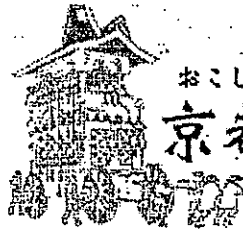 おこし
京